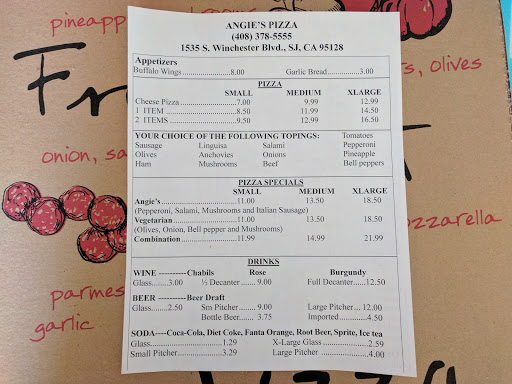 pineapp
ANGIE'S PIZZA
(408) 378-5555
1535 S. Winchester Blvd., SJ, CA 95128
Appetizers
Buffalo Wings 8.00 Garlic Bread 3.00
PIZZA
SMALL MEDIUM XLARGE
Cheese Pizza 7.00 9.99 12.99
1 ITEM 8.50 11.99 14.50
2 ITEMS 9.50 12.99 16.50
YOUR CHOICE OF THE FOLLOWING TOPINGS: Tomatoes
Sausage Linguisa Salami Pepperoni
Olives Anchovies Onions Pineapple
Ham Mushrooms Beef Bell peppers
PIZZA SPECIALS
SMALL MEDIUM XLARGE
Angie's 11.00 13.50 18.50
(Pepperoni, Salami, Mushrooms and Italian Sausage)
Vegetarian 11.00 13.50 18.50
(Olives, Onion, Bell pepper and Mushrooms)
Combination 11.99 14.99 21.99
DRINKS
WINE ----------Chabils Rose Burgundy
Glass.....3.00 ½ Decanter ....... 9.00 Full Decanter......12.50
BEER ----------Beer Draft
Glass........2.50 Sm Pitcher ....... 9.00 Large Pitcher ... 12.00
Bottle Beer..... 3.75 Imported............4.50
SODA----Coca-Cola, Diet Coke, Fanta Orange, Root Beer, Sprite, Ice tea
Glass 1.29 X-Large Glass 2.59
Small Pitcher 3.29 Large Pitcher 4.00
Fr
s, olives
onion, sa
ozzarella
parmes
garlic